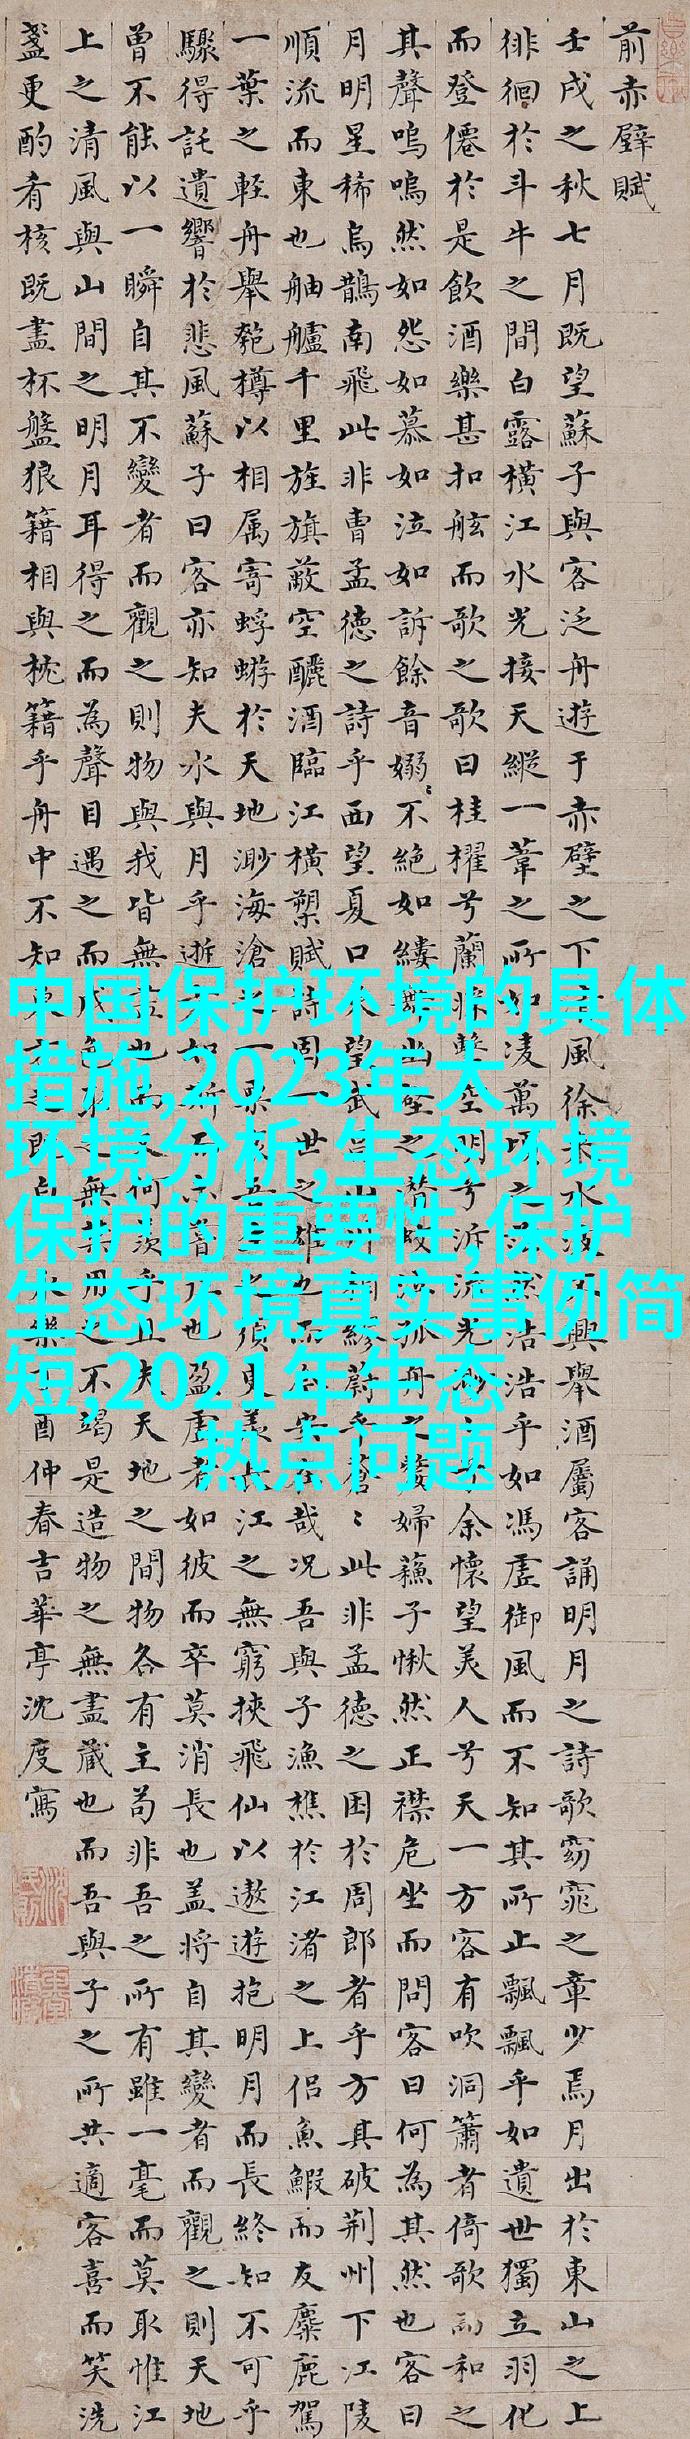 前赤壁賦
壬戌之秋七月既望蘇子與客泛舟遊于赤壁之下風徐水興舉酒屬客誦明月之詩歌窈窕之章少焉月出於東山之上
徘徊於斗牛之間白露橫江水光接天縱一葦之所如凌萬浩乎如馮虛御風而不知其所止飄飄乎如遺世獨立羽化
而登僊於是飲酒樂甚扣舷而歌之歌曰桂櫂兮蘭空明兮余懷望美人兮天一方客有吹洞簫者倚歌而和之
其聲嗚嗚然如怨如慕如泣如訴餘音嫋ミ不絕如縷之孤舟之嫠婦蘓子愀然正襟危坐而問客曰何為其然也客曰
月明星稀烏鵲南飛此非曹孟德之詩乎西望夏口望武繆蒼ミ此非孟德之困於周郎者乎方其破荊州下江陵
順流而東也舳艫千里旌旗蔽空釃酒臨江橫槊賦詩固一世之雄也而哉況吾與子漁樵於江渚之上侶魚鰕而友麋鹿駕
一葉之輕舟舉匏樽以相屬寄蜉蝣於天地渺海滄一吾須羨長江之無窮挾飛仙以遨遊抱明月而長終知不可乎
驟得託遺響於悲風蘇子曰客亦知夫水與月乎逝如也盈虛者如彼而卒莫消長也蓋將自其變者而觀之則天地
曾不能以一瞬自其不變者而觀之則物與我皆無也何乎且夫天地之間物各有主苟非吾之所有雖一毫而莫取惟江
上之清風與山間之明月耳得之而為聲目遇之而成色之無用不竭是造物之無盡藏也而吾與子之所共適客喜而笑洗
盞更酌肴核既盡杯盤狼籍相與枕籍乎舟中不知樂酉仲春吉華亭沈度寫
中国保护环境的具体
措施,2023年大
环境分析,生态环境
保护的重要性,保护
生态环境真实事例简
短,2021年生态
热点问题